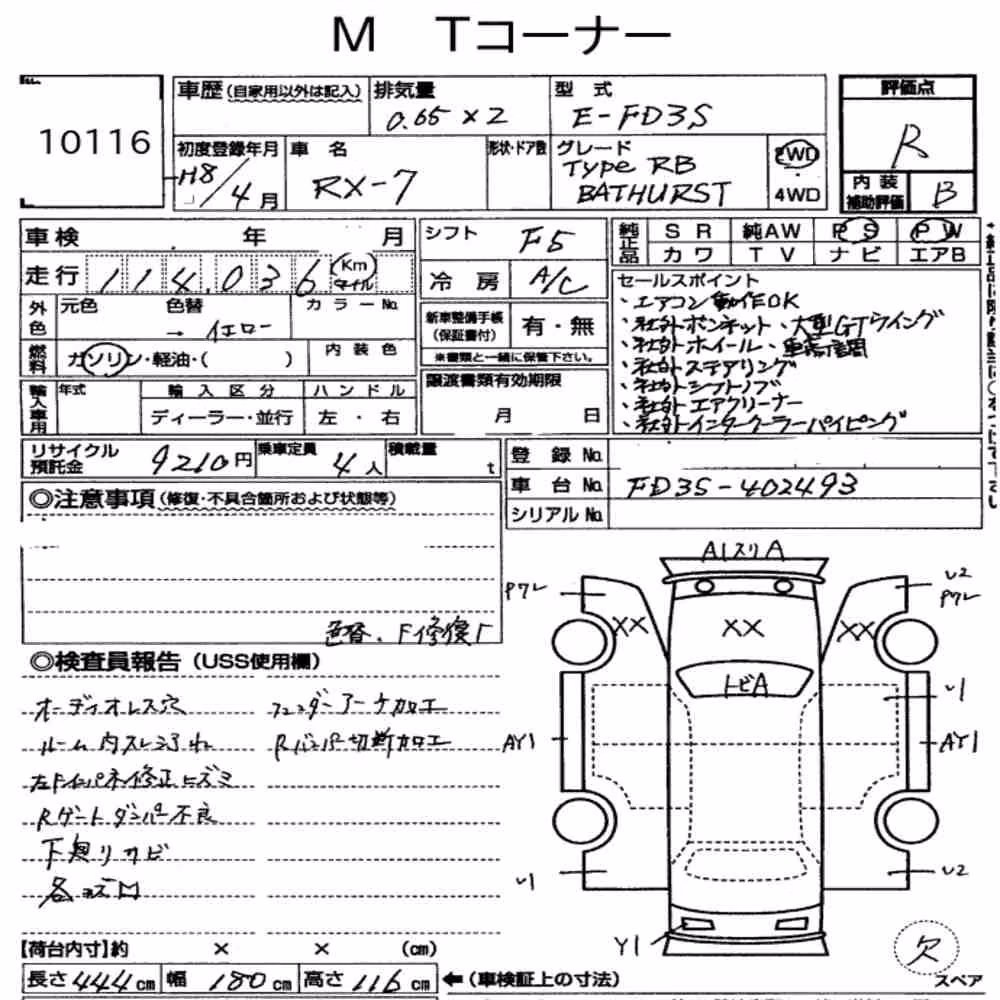 M Tコーナー
10116
車歴 (自家用以外は記入)
排気量
0.65×2
型式
E-FD3S
評価点
R
内装補助評価
B
初度登録年月
H8/4月
車名
RX-7
形状・ドア数
グレード
Type RB
BATHURST
2WD
4WD
車検 年 月
走行 114,036 Km マイル
外色
元色 色替 カラーNo.
→ イエロー
燃料
ガソリン・軽油・( )
内装色
輸入車用
年式
輸入区分
ディーラー・並行
ハンドル
左・右
シフト F5
冷房 A/C
新車整備手帳(保証書付)
有・無
※書類と一緒に保管下さい。
譲渡書類有効期限
月 日
純正品
SR 純AW PS PW
カワ TV ナビ エアB
セールスポイント
・エアコン動作OK
・社外ボンネット・大型GTウイング
・社外ホイール・車高調
・社外ステアリング
・社外シフトノブ
・社外エアクリーナー
・社外インタークーラーパイピング
リサイクル預託金 9210円
乗車定員 4人
積載量 t
登録No.
車台No. FD3S-402493
シリアルNo.
◎注意事項(修復・不具合箇所および状態等)
色替、F修復
◎検査員報告(USS使用欄)
オーディオレス穴
フェンダーアーチ加工
ルーム内スレヨゴレ
Rバンパー切断加工
左Fインパネ修正ヒズミ
Rゲートダンパー不良
下廻りサビ
各キズM
A1スリA
Pワレ
U2
Pワレ
XX
XX
XX
トビA
U1
AY1
AY1
U1
U2
Y1
欠
スペア
【荷台内寸】約 × × (cm)
長さ 444cm 幅 180cm 高さ 116cm
←(車検証上の寸法)